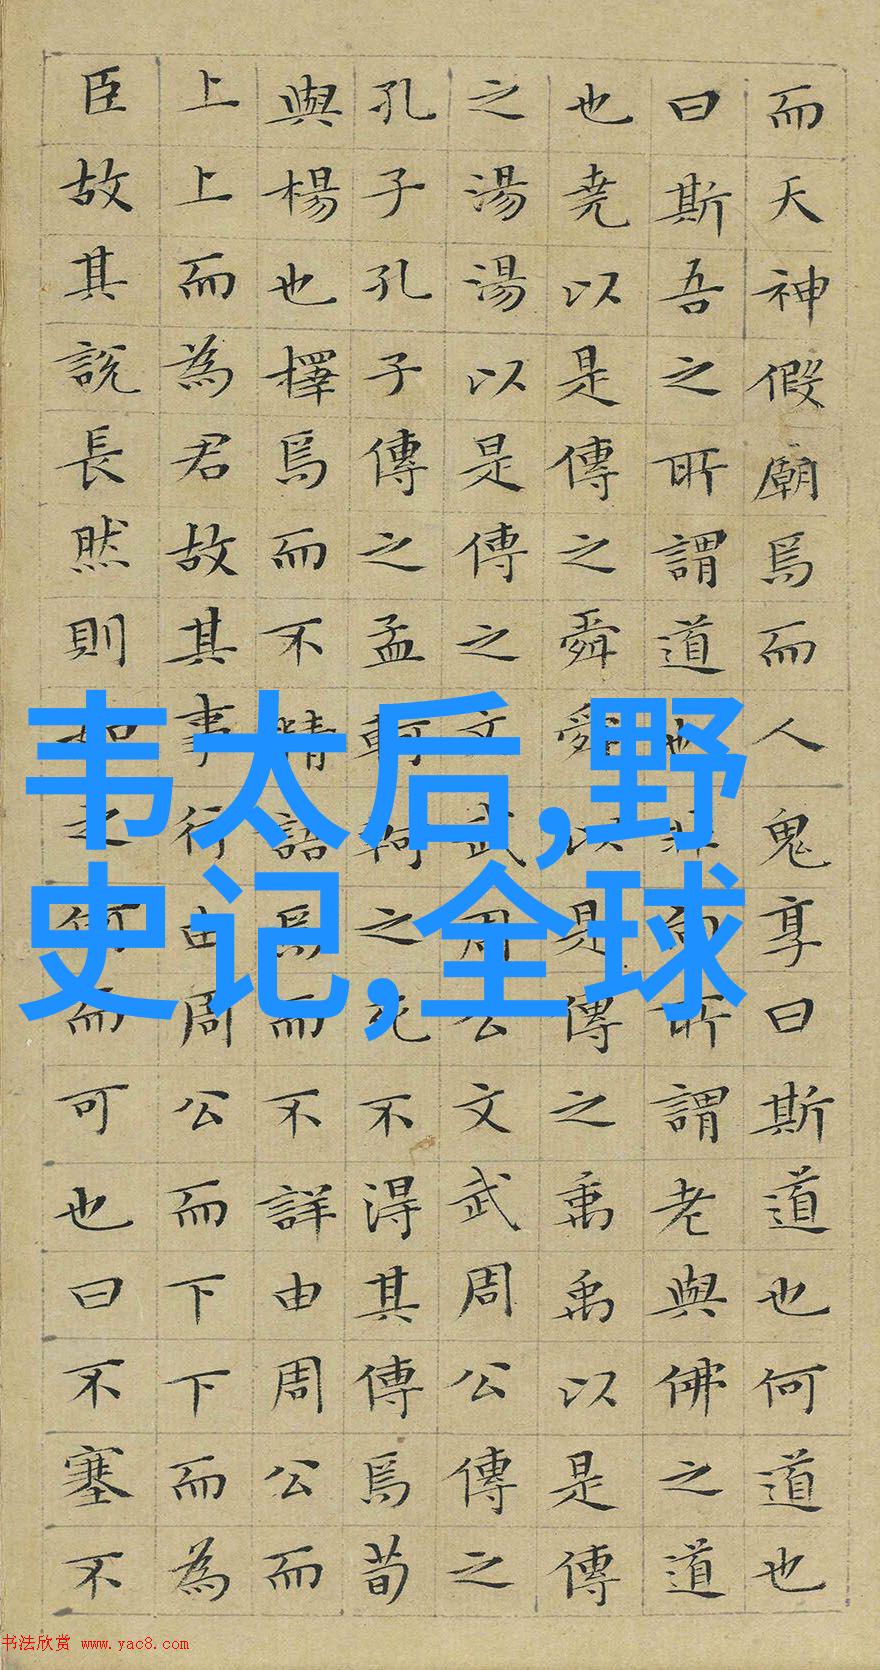 而天神假廟焉而人鬼享曰斯道也何道也
曰斯吾之所謂道也非向所謂老與佛之道
也堯以是傳之舜舜以是傳之禹禹以是傳
之湯湯以是傳之文武周公文武周公傳之
孔子孔子傳之孟軻軻之死不得其傳焉荀
與楊也擇焉而不精語焉而不詳由周公而
上上而為君故其事行由周公而下下而為
臣故其說長然則如之何而可也曰不塞不
韦太后,野
史记,全球
书法欣赏 www.yac8.com